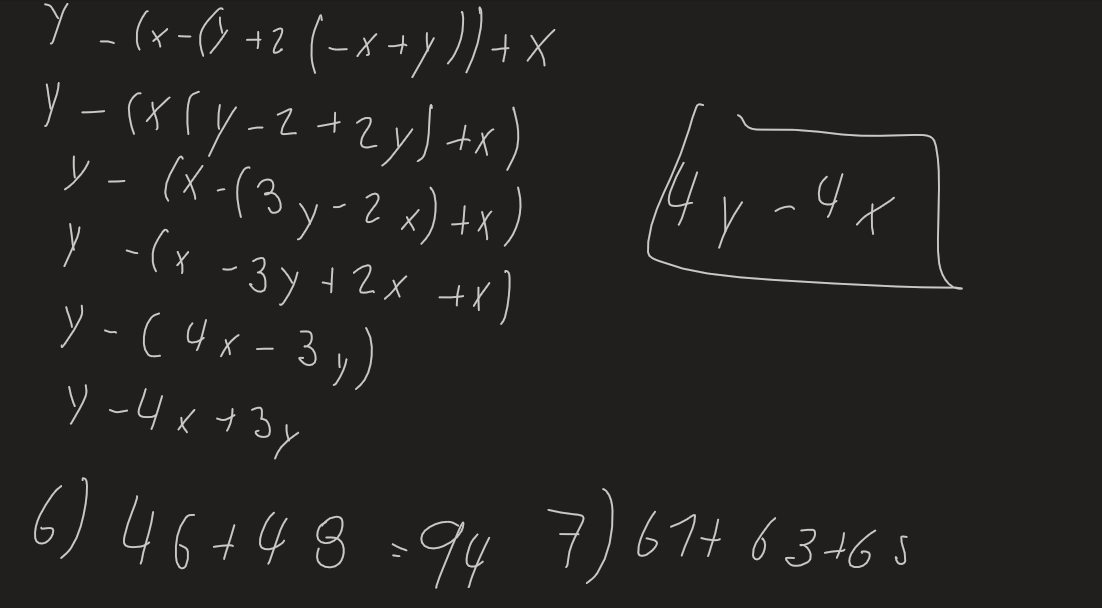 y - (x-(y+2(-x+y))+x
y - (x(y-2+2y)+x)
y - (x-(3y-2x)+x)
y -(x -3y+2x +x)
y - (4x-3y)
y -4x+3y
4y - 4x
6) 46+48 = 94 7) 61+63+65